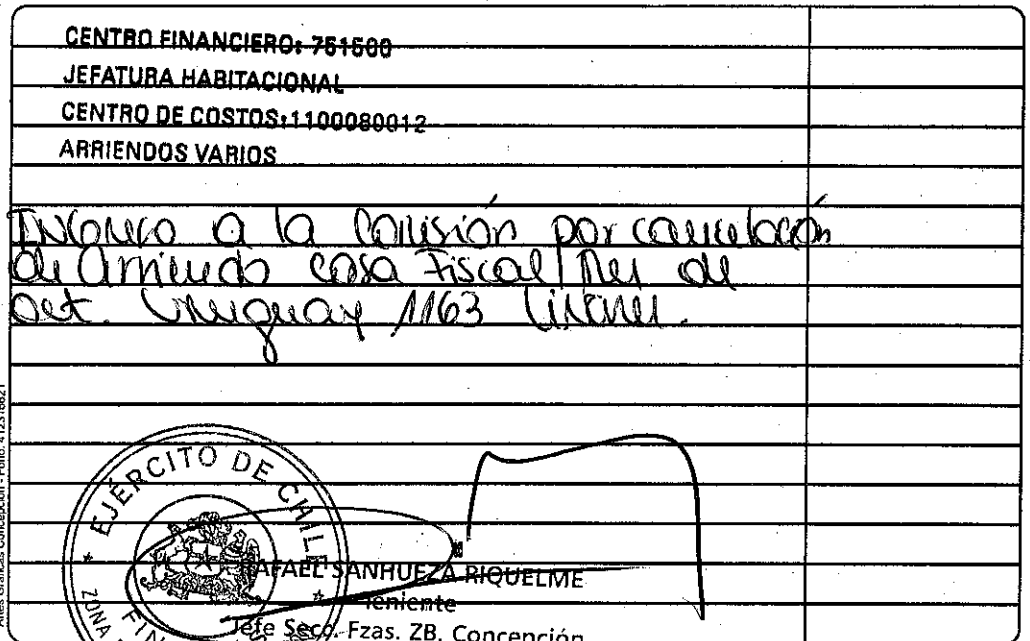 CENTRO FINANCIERO: 751500
JEFATURA HABITACIONAL
CENTRO DE COSTOS:1100080012
ARRIENDOS VARIOS
a la Comisión por cancelación
de Arriendo casa Fiscal Mes de
Oct. Uruguay 1163 Linares.
EJÉRCITO DE CHILE
RAFAEL SANHUEZA RIQUELME
Teniente
Jefe Secc. Fzas. ZB. Concepción
ZONA
Artes Gráficas Concepción - Fono: 412318621